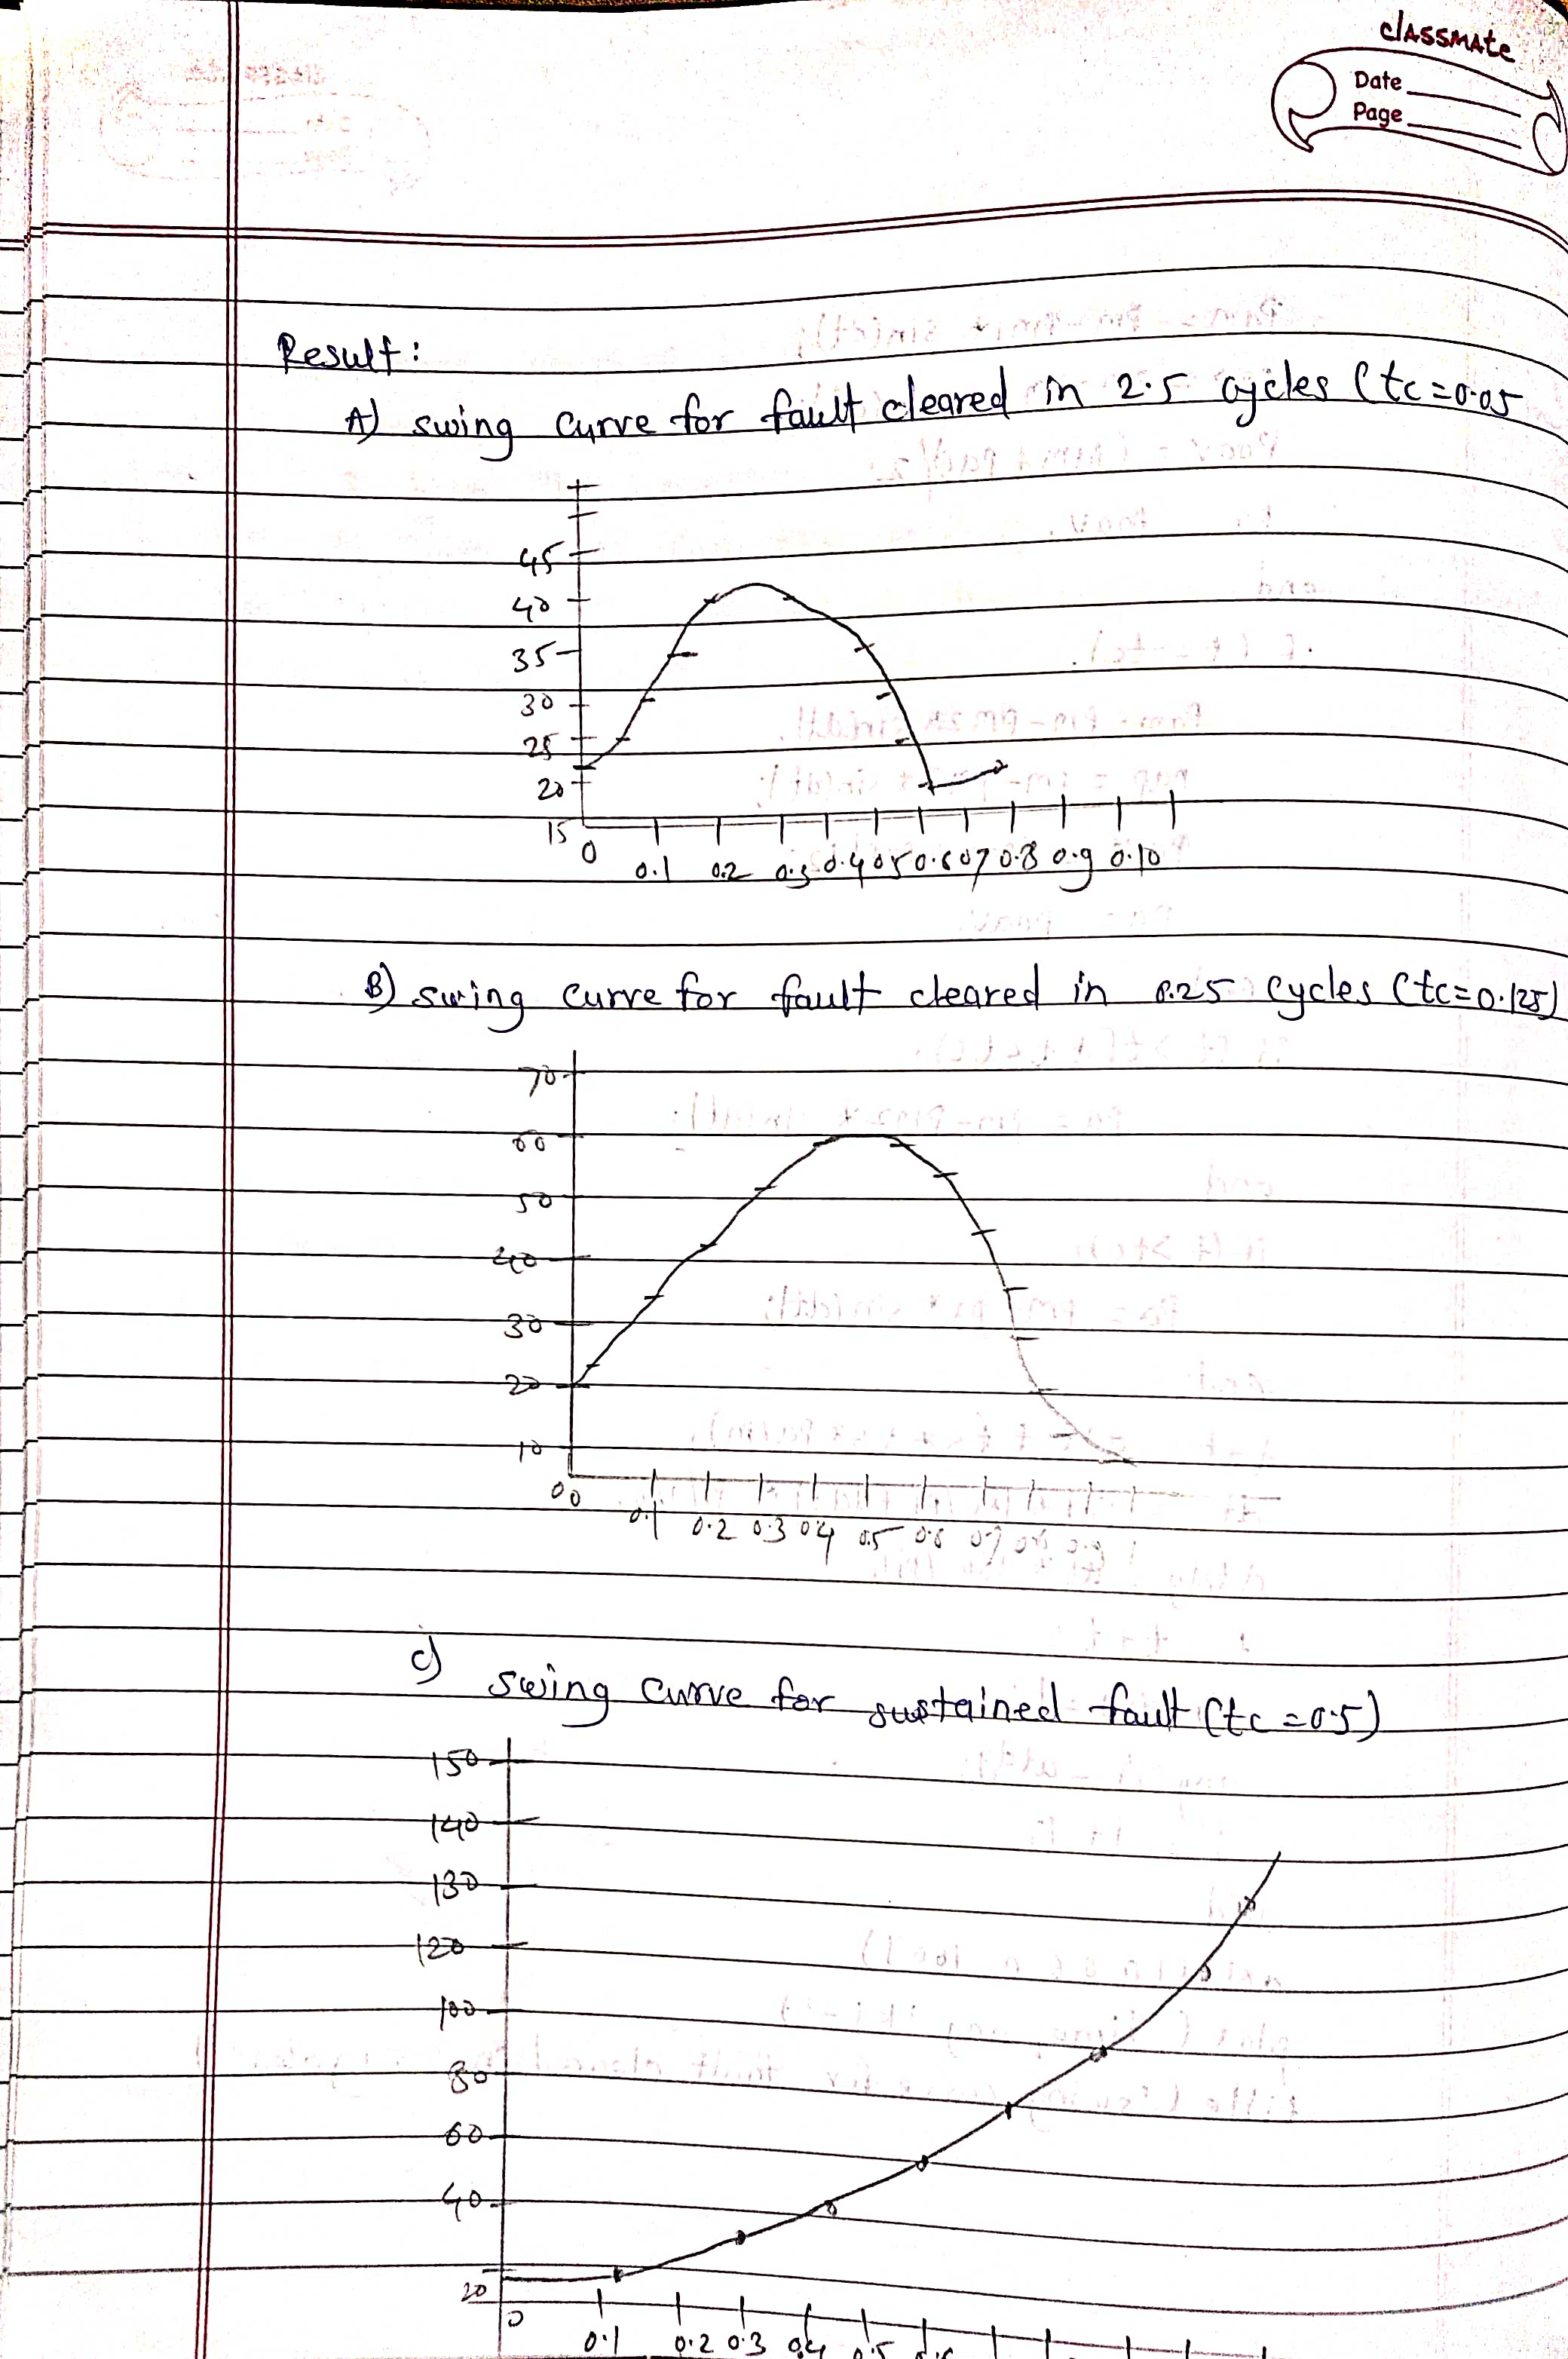 classmate
Date
Page
Result:
A) swing curve for fault cleared in 2.5 cycles (tc=0.05
45
40
35
30
25
20
15
0 0.1 0.2 0.3 0.4 05 0.6 07 0.8 0.9 0.10
B) swing curve for fault cleared in 6.25 cycles (tc=0.125)
70
60
50
40
30
20
10
0 0
0.1 0.2 0.3 0.4 0.5 0.6 0.7 0.8 0.9 1
c) swing curve for sustained fault (tc=0.5)
150
140
130
120
100
80
60
40
20
0 0.1 0.2 0.3 0.4 0.5 0.6